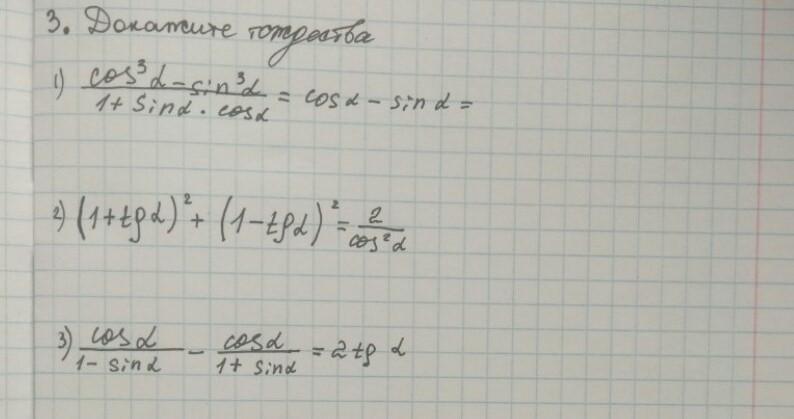 3. Докажите тождества
1) \frac{cos³α - sin³α}{1 + sinα · cosα} = cosα - sin α =
2) (1+tgα)² + (1-tgα)² = \frac{2}{cos²α}
3) \frac{cosα}{1 - sinα} - \frac{cosα}{1 + sinα} = 2tg α